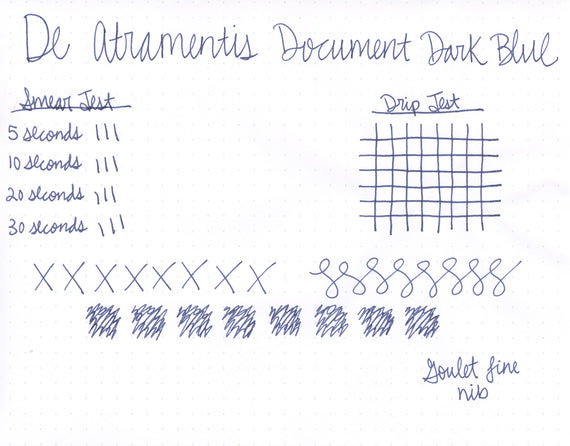 De Atramentis Document Dark Blue
Smear Test
5 seconds
10 seconds
20 seconds
30 seconds
Drip Test
X X X X X X X X
Goulet fine
nib